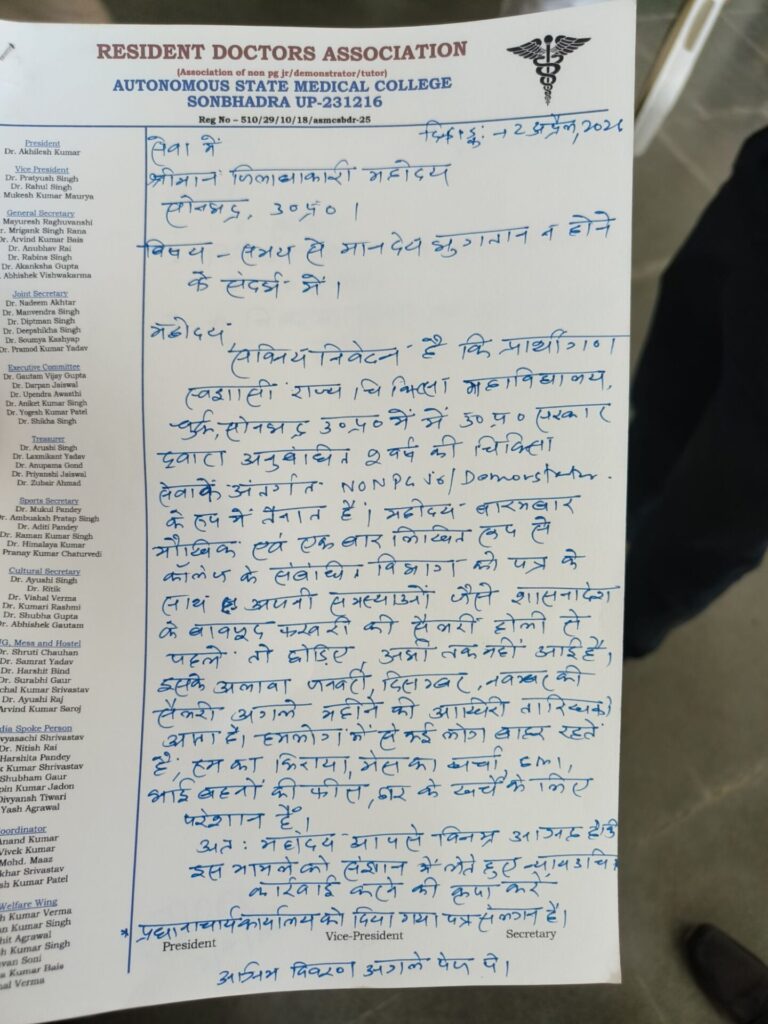 RESIDENT DOCTORS ASSOCIATION
(Association of non pg jr/demonstrator/tutor)
AUTONOMOUS STATE MEDICAL COLLEGE
SONBHADRA UP-231216
Reg No – 510/29/10/18/asmcsbdr-25
President
Dr. Akhilesh Kumar
Vice President
Dr. Pratyush Singh
Dr. Rahul Singh
Mukesh Kumar Maurya
General Secretary
Mayuresh Raghuvanshi
r. Mrigank Singh Rana
Dr. Arvind Kumar Bais
Dr. Anubhav Rai
Dr. Rabins Singh
Dr. Akanksha Gupta
Abhishek Vishwakarma
Joint Secretary
Dr. Nadeem Akhtar
Dr. Manvendra Singh
Dr. Diptman Singh
Dr. Deepshikha Singh
Dr. Soumya Kashyap
Dr. Pramod Kumar Yadav
Executive Committee
Dr. Gautam Vijay Gupta
Dr. Darpan Jaiswal
Dr. Upendra Awasthi
Dr. Aniket Kumar Singh
Dr. Yogesh Kumar Patel
Dr. Shikha Singh
Treasurer
Dr. Arushi Singh
Dr. Laxmikant Yadav
Dr. Anupama Gond
Dr. Priyanshi Jaiswal
Dr. Zubair Ahmad
Sports Secretary
Dr. Mukul Pandey
Dr. Ambuaksh Pratap Singh
Dr. Aditi Pandey
Dr. Raman Kumar Singh
Dr. Himalaya Kumar
Pranay Kumar Chaturvedi
Cultural Secretary
Dr. Ayushi Singh
Dr. Ritik
Dr. Vishal Verma
Dr. Kumari Rashmi
Dr. Shubha Gupta
Dr. Abhishek Gautam
UG, Mess and Hostel
Dr. Shruti Chauhan
Dr. Samrat Yadav
Dr. Harshit Bind
Dr. Surabhi Gaur
chal Kumar Srivastav
Dr. Ayushi Raj
Arvind Kumar Saroj
dia Spoke Person
vyasachi Shrivastav
Dr. Nitish Rai
Harshita Pandey
k Kumar Shrivastav
Shubham Gaur
pin Kumar Jadon
Divyansh Tiwari
Yash Agrawal
oordinator
Anand Kumar
Vivek Kumar
Mohd. Maaz
khar Srivastav
sh Kumar Patel
Welfare Wing
h Kumar Verma
an Kumar Singh
hit Agrawal
h Kumar Singh
van Soni
a Kumar Bais
al Verma
→ 2 अप्रैल, 2026
सेवा में
श्रीमान जिलाधिकारी महोदय
सोनभद्र, उ०प्र० ।
विषय – समय से मानदेय भुगतान न होने
के संदर्भ में ।
महोदय,
सविनय निवेदन है कि प्रार्थीगण
स्वशासी राज्य चिकित्सा महाविद्यालय,
सोनभद्र उ०प्र० में में उ०प्र० सरकार
द्वारा अनुबंधित 2 वर्ष की चिकित्सा
सेवा के अंतर्गत NON PG JR/Demonstrator.
के रूप में तैनात है । महोदय बारम्बार
मौखिक एवं एक बार लिखित रूप से
कॉलेज के संबंधित विभाग को पत्र के
साथ अपनी समस्याओं जैसे शासनादेश
के बावजूद फरवरी की सैलरी होली से
पहले तो छोड़िए, अभी तक नहीं आई है,
इसके अलावा जनवरी, दिसम्बर, नवम्बर की
सैलरी अगले महीने की आखिरी तारीख को
हमलोग में से कई लोग बाहर रहते
है, का किराया, मेस का खर्चा, EMI,
भाई बहनों की फीस, घर के खर्चे के लिए
परेशान है ।
अतः महोदय आपसे विनम्र आग्रह है कि
इस मामले को संज्ञान में लेते हुए न्यायोचित
कार्रवाई करने की कृपा करें
* प्रधानाचार्य कार्यालय को दिया गया पत्र संलग्न है ।
President Vice-President Secretary
विवरण अगले पेज पे ।